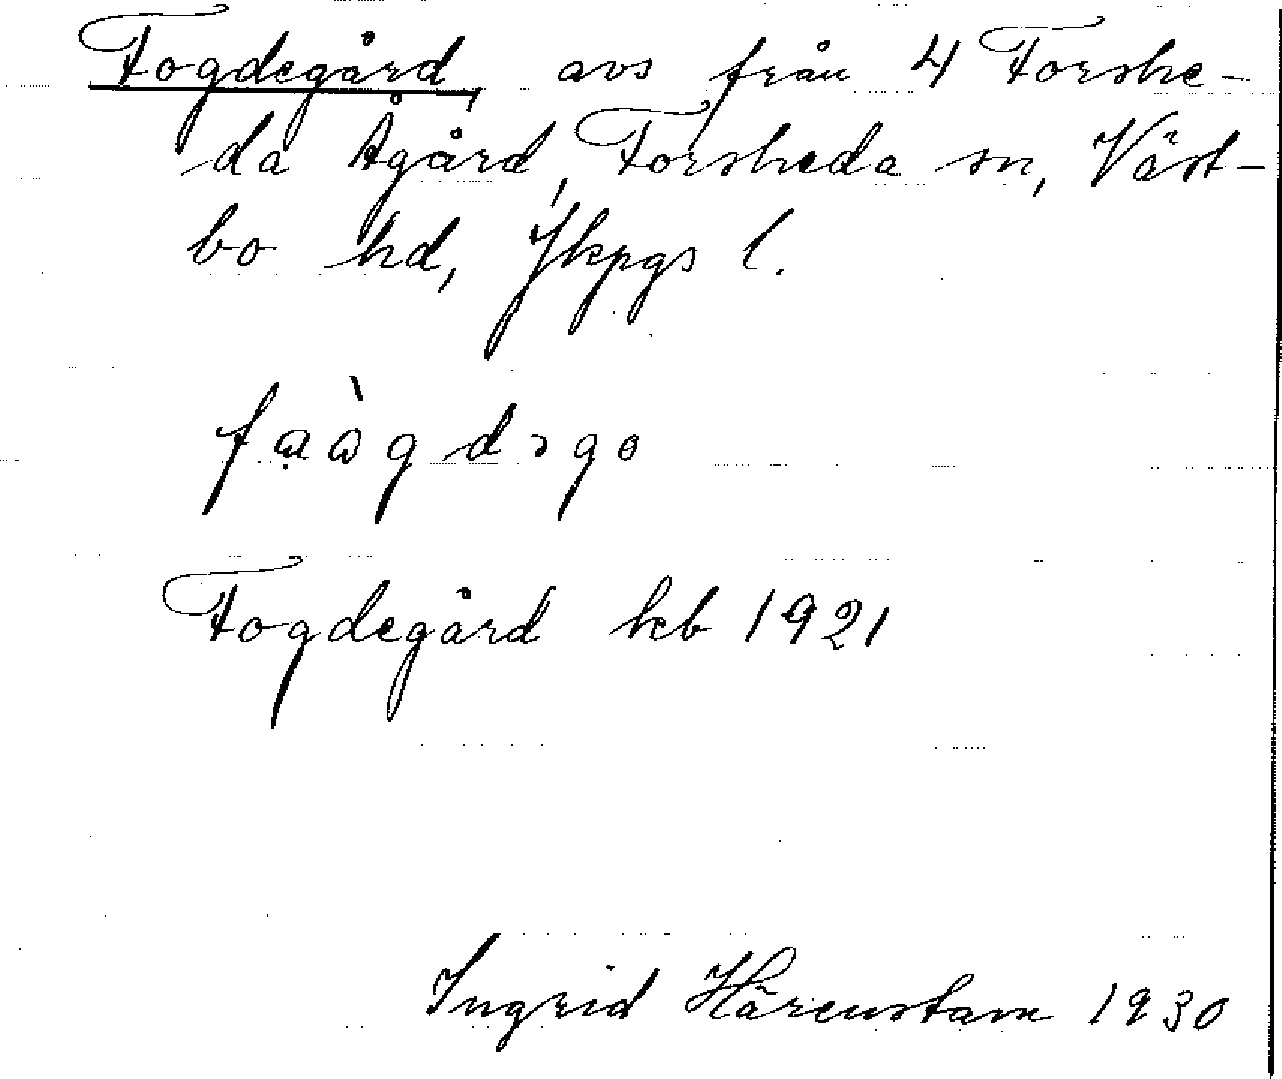 Fogdegård, avs från 4 Forshe-
da Ågård, Forsheda sn, Väst-
bo hd, Jkpgs l.
Fogdegård kb 1921
Ingrid Härenstam 1930